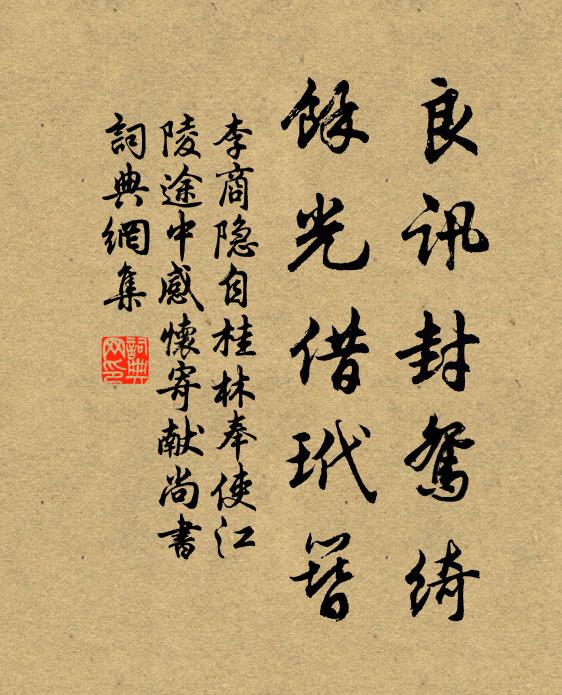 良訊封鴛綺
餘光借玳簪
李商隐自桂林奉使江
陵途中感懷寄献尚書
詞典網集
詞典
网印